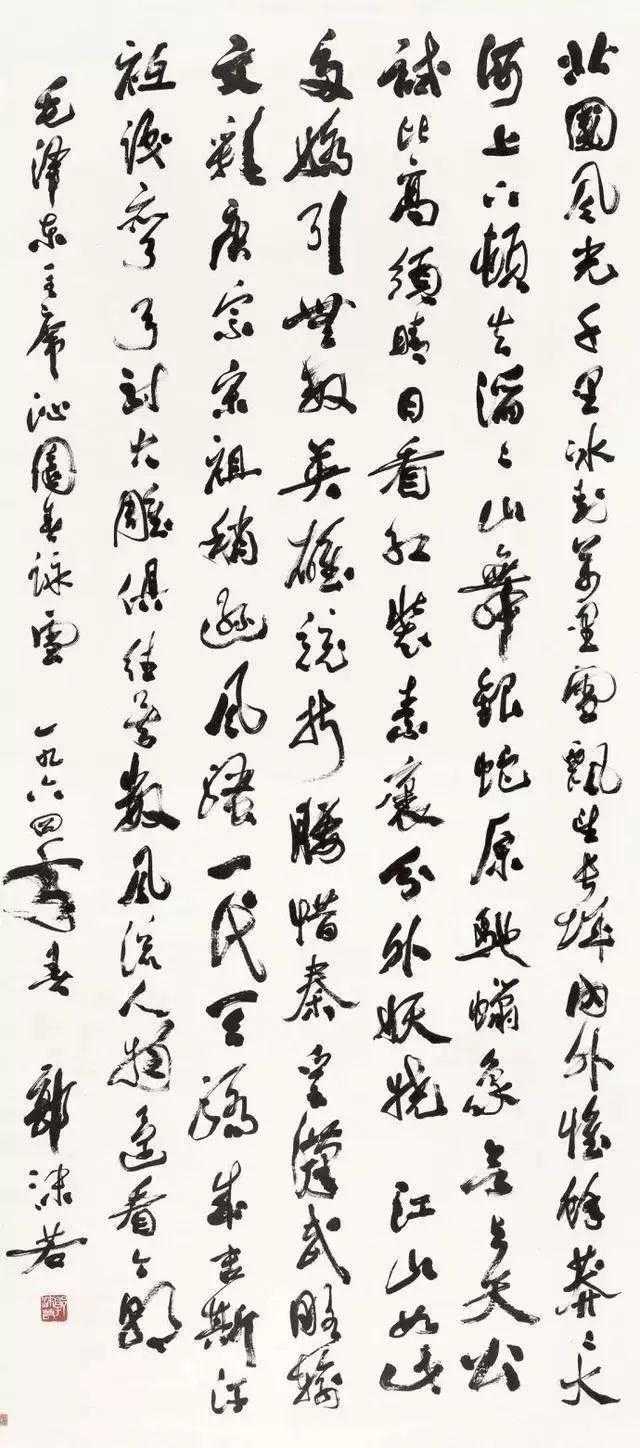 北國風光千里冰封萬里雪飄望長城内外惟餘莽〻大
河上下頓失滔〻山舞銀蛇原馳蠟象欲与天公
試比高須晴日看紅裝素裹分外妖嬈 江山如此
多嬌引無數英雄競折腰惜秦皇漢武略輸
文彩唐宗宋祖稍遜風騷一代天驕成吉斯汗
祗識彎弓射大雕俱往矣數風流人物還看今朝
毛澤東主席沁園春詠雪 一九六四年春 郭沫若